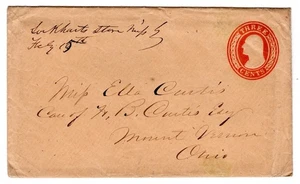 Lockhart's Store Miss
July 5th
THREE
CENTS
Miss Ella Curtis
Care of H. B. Curtis Esq
Mount Vernon
Ohio